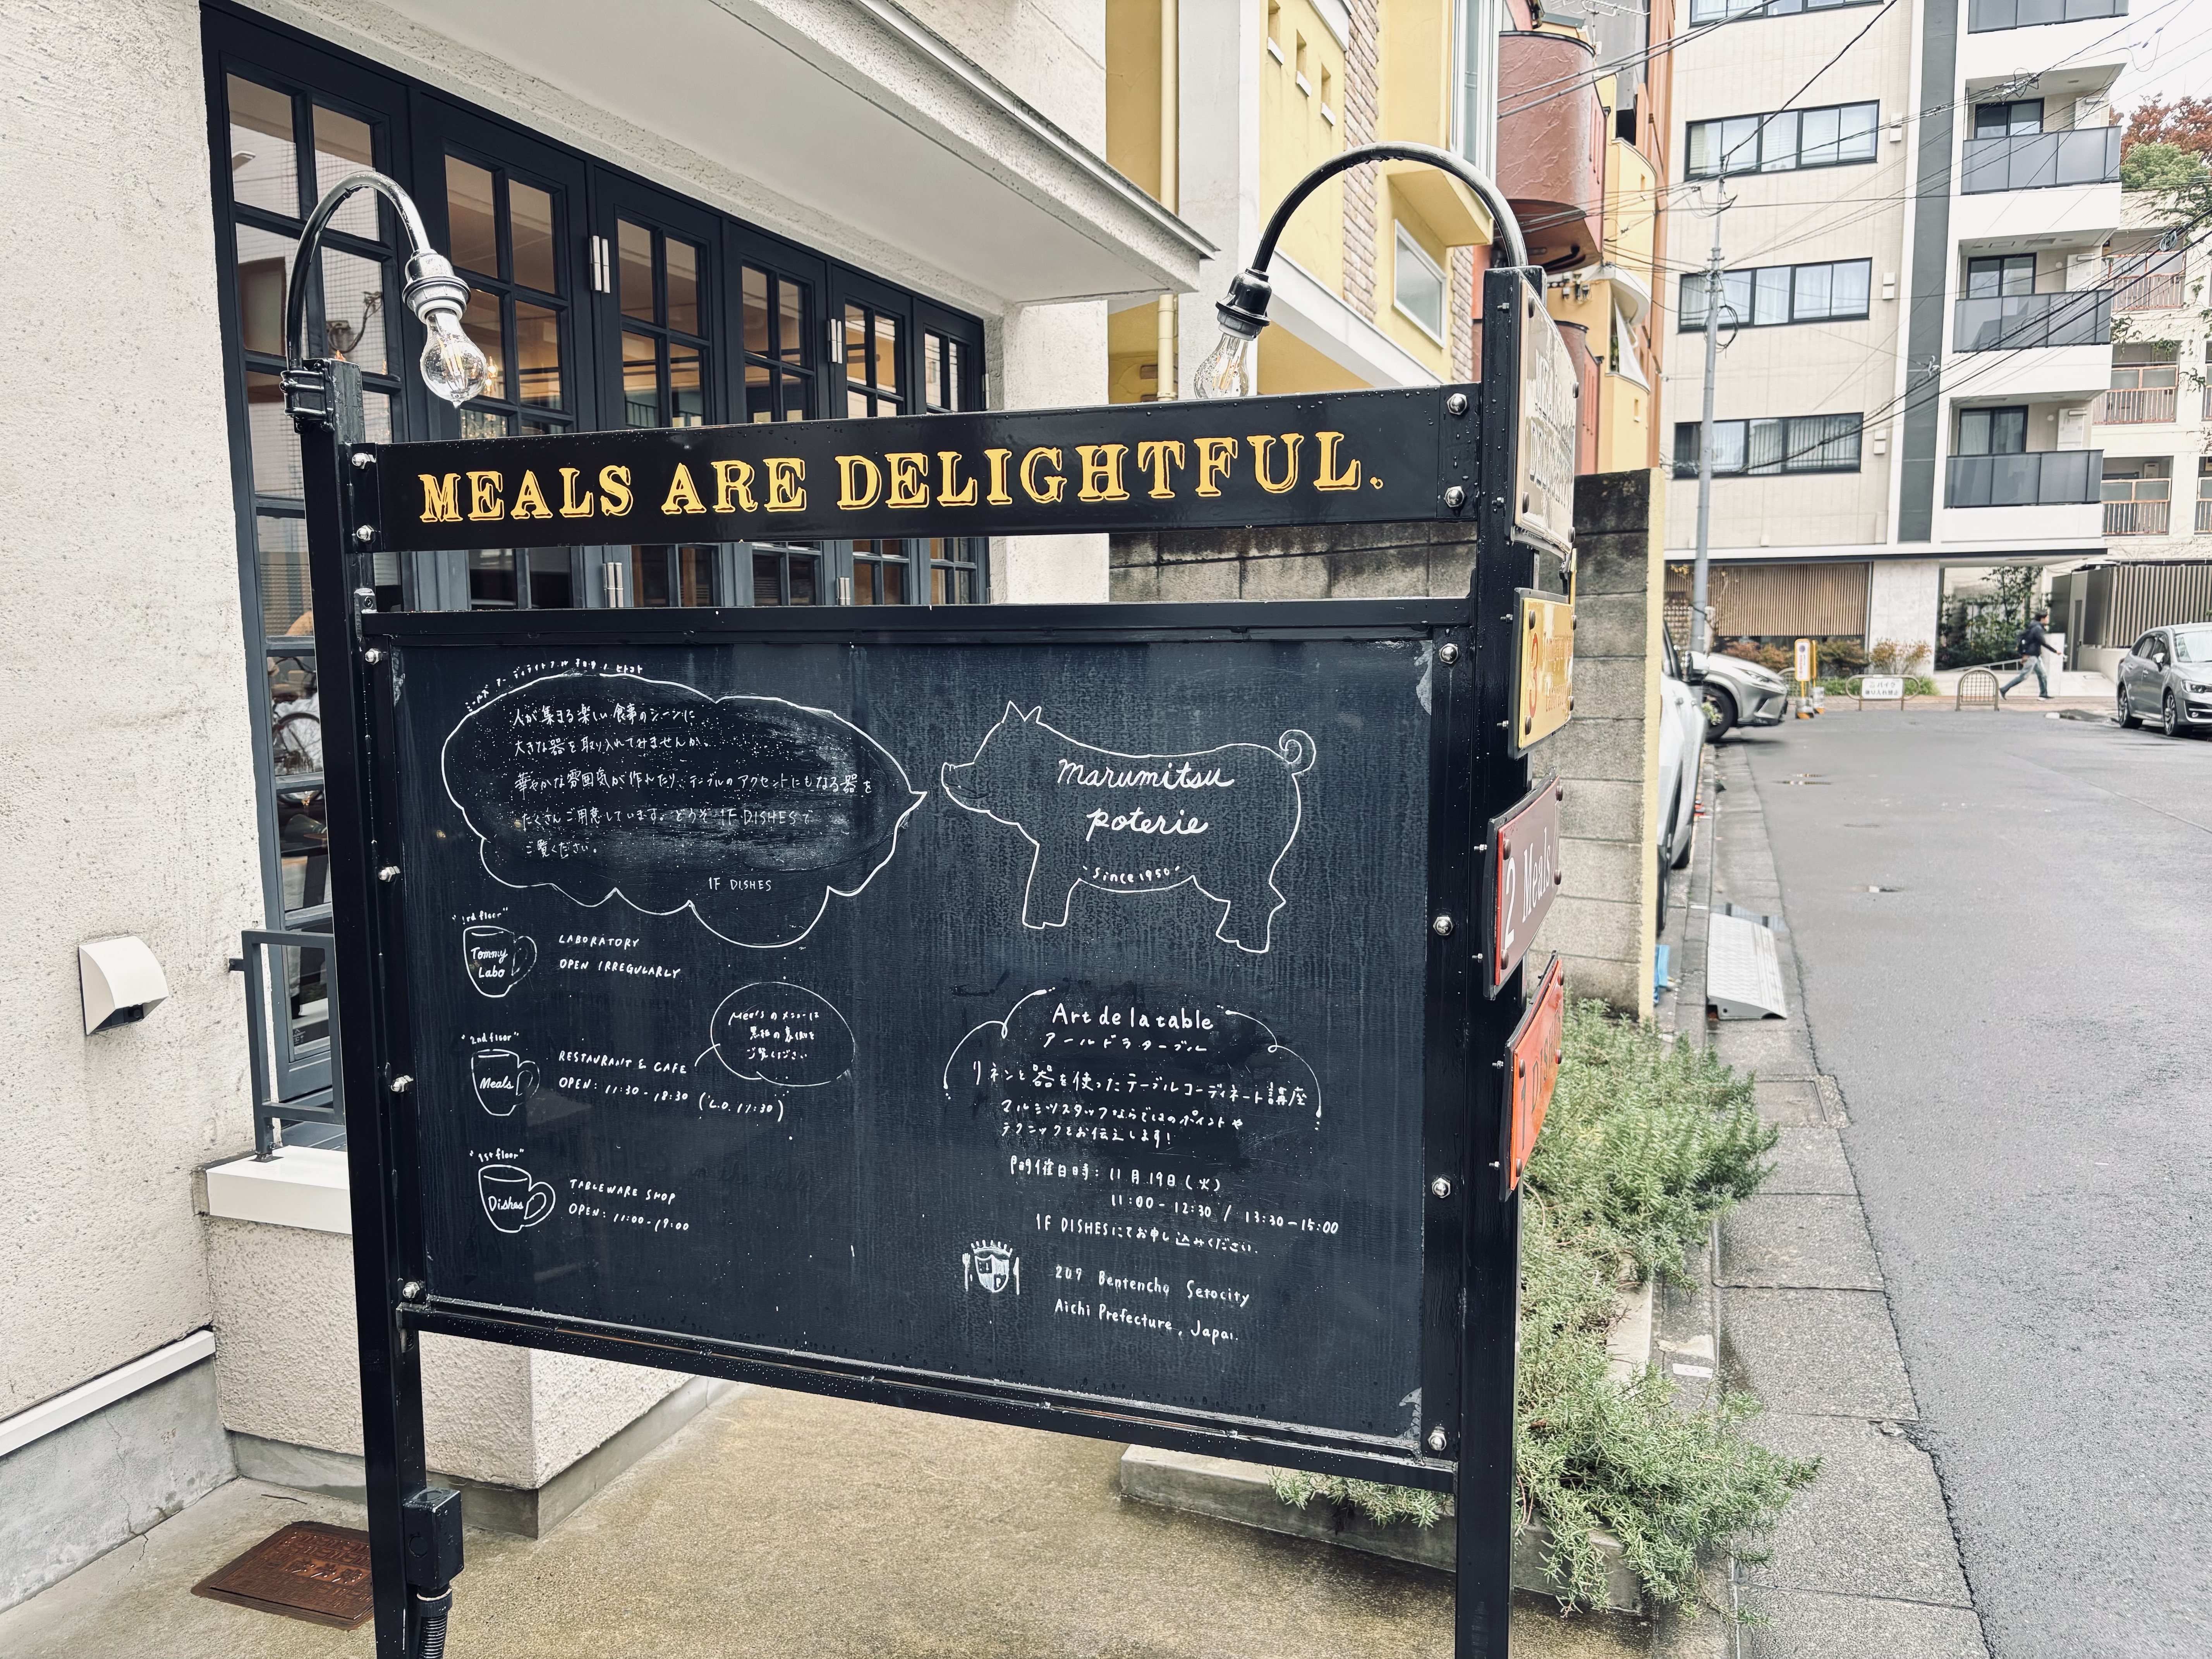 MEALS ARE DELIGHTFUL.
人が集まる楽しい食事のシーンに
大きな器を取り入れてみませんか。
華やかな雰囲気が作れたり、テーブルのアクセントにもなる器を
たくさんご用意しています。どうぞ 1F DISHESで
ご覧ください。
1F DISHES
marumitsu
poterie
"Since 1950"
"3rd floor"
Tommy
Labo
LABORATORY
OPEN IRREGULARLY
"2nd floor"
Meals
RESTAURANT & CAFE
OPEN: 11:30 - 18:30 (L.O. 17:30)
Mealsのメニューは
黒板の裏側を
ご覧ください
"1st floor"
Dishes
TABLEWARE SHOP
OPEN: 11:00 - 19:00
Art de la table
アール ド ラ ターブル
リネンと器を使ったテーブルコーディネート講座
マルミツスタッフならではのポイントや
テクニックをお伝えします!
開催日時: 11月19日(火)
11:00 - 12:30 / 13:30 - 15:00
1F DISHESにてお申し込みください。
209 Bentencho Setocity
Aichi Prefecture, Japan.
3
2 Meals
1